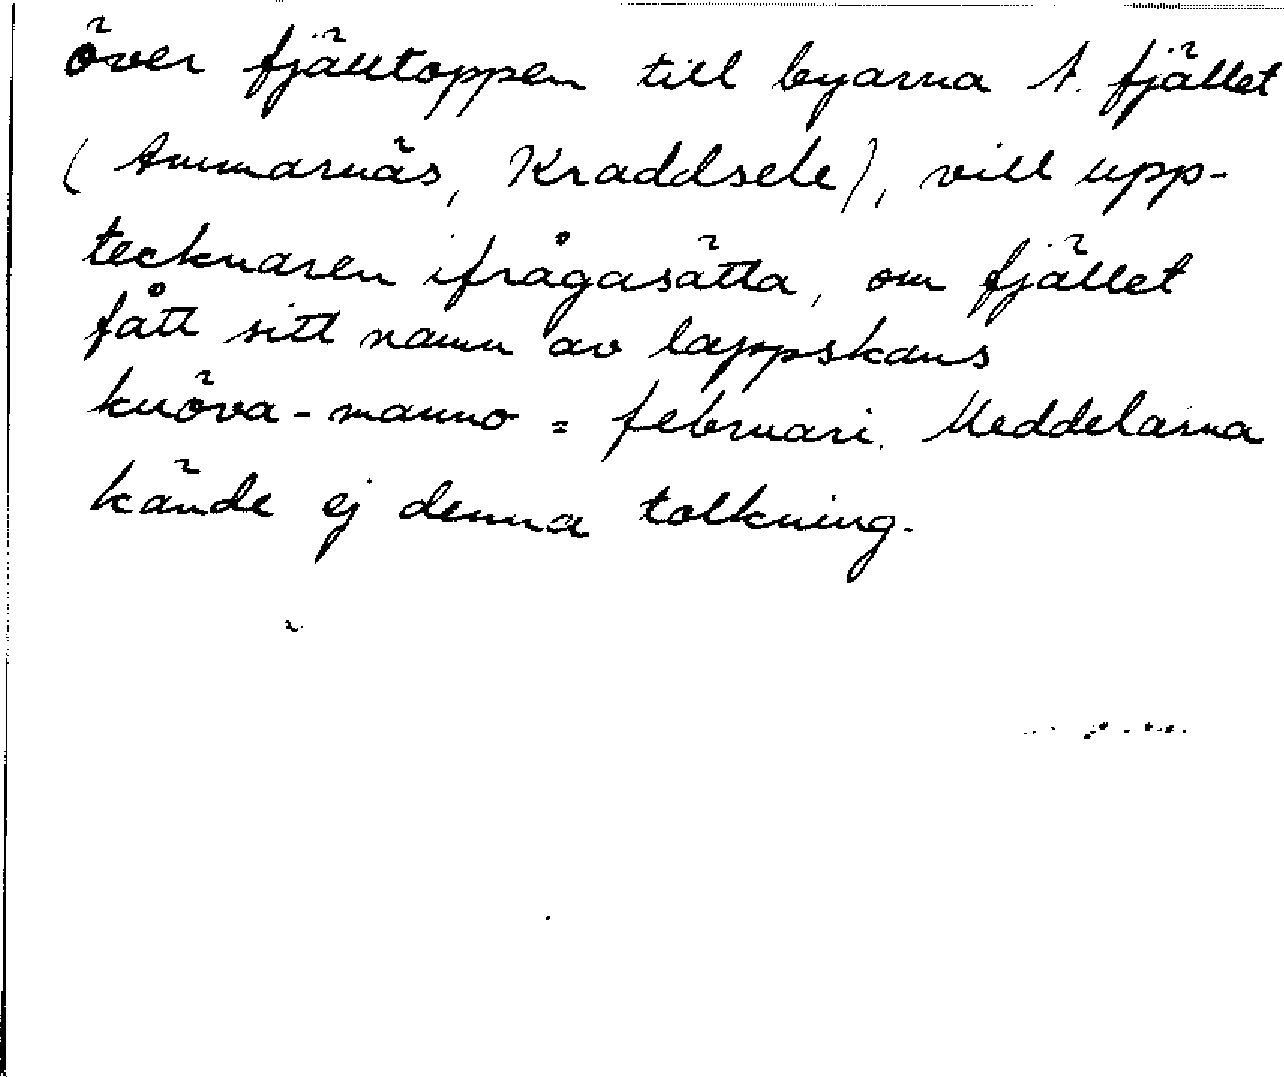 över fjälltoppen till byarna A. fjället
(Ammarnäs, Kraddsele), vill upp-
tecknaren ifrågasätta, om fjället
fått sitt namn av lappskans
knöva-manno = februari. Meddelarna
kände ej denna tolkning.